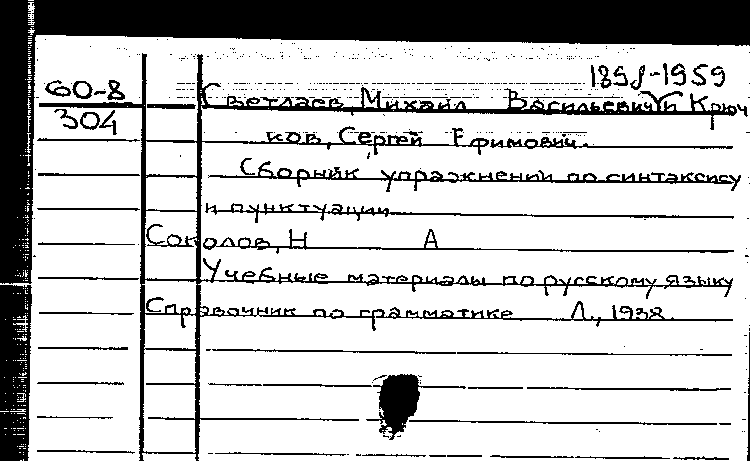 1898-1959
60-8 Светлаев, Михаил Васильевич и Крюч
304 ков, Сергей Ефимович.
Сборник упражнений по синтаксису
и пунктуации
Соколов, Н А
Учебные материалы по русскому языку
Справочник по грамматике Л., 1938.